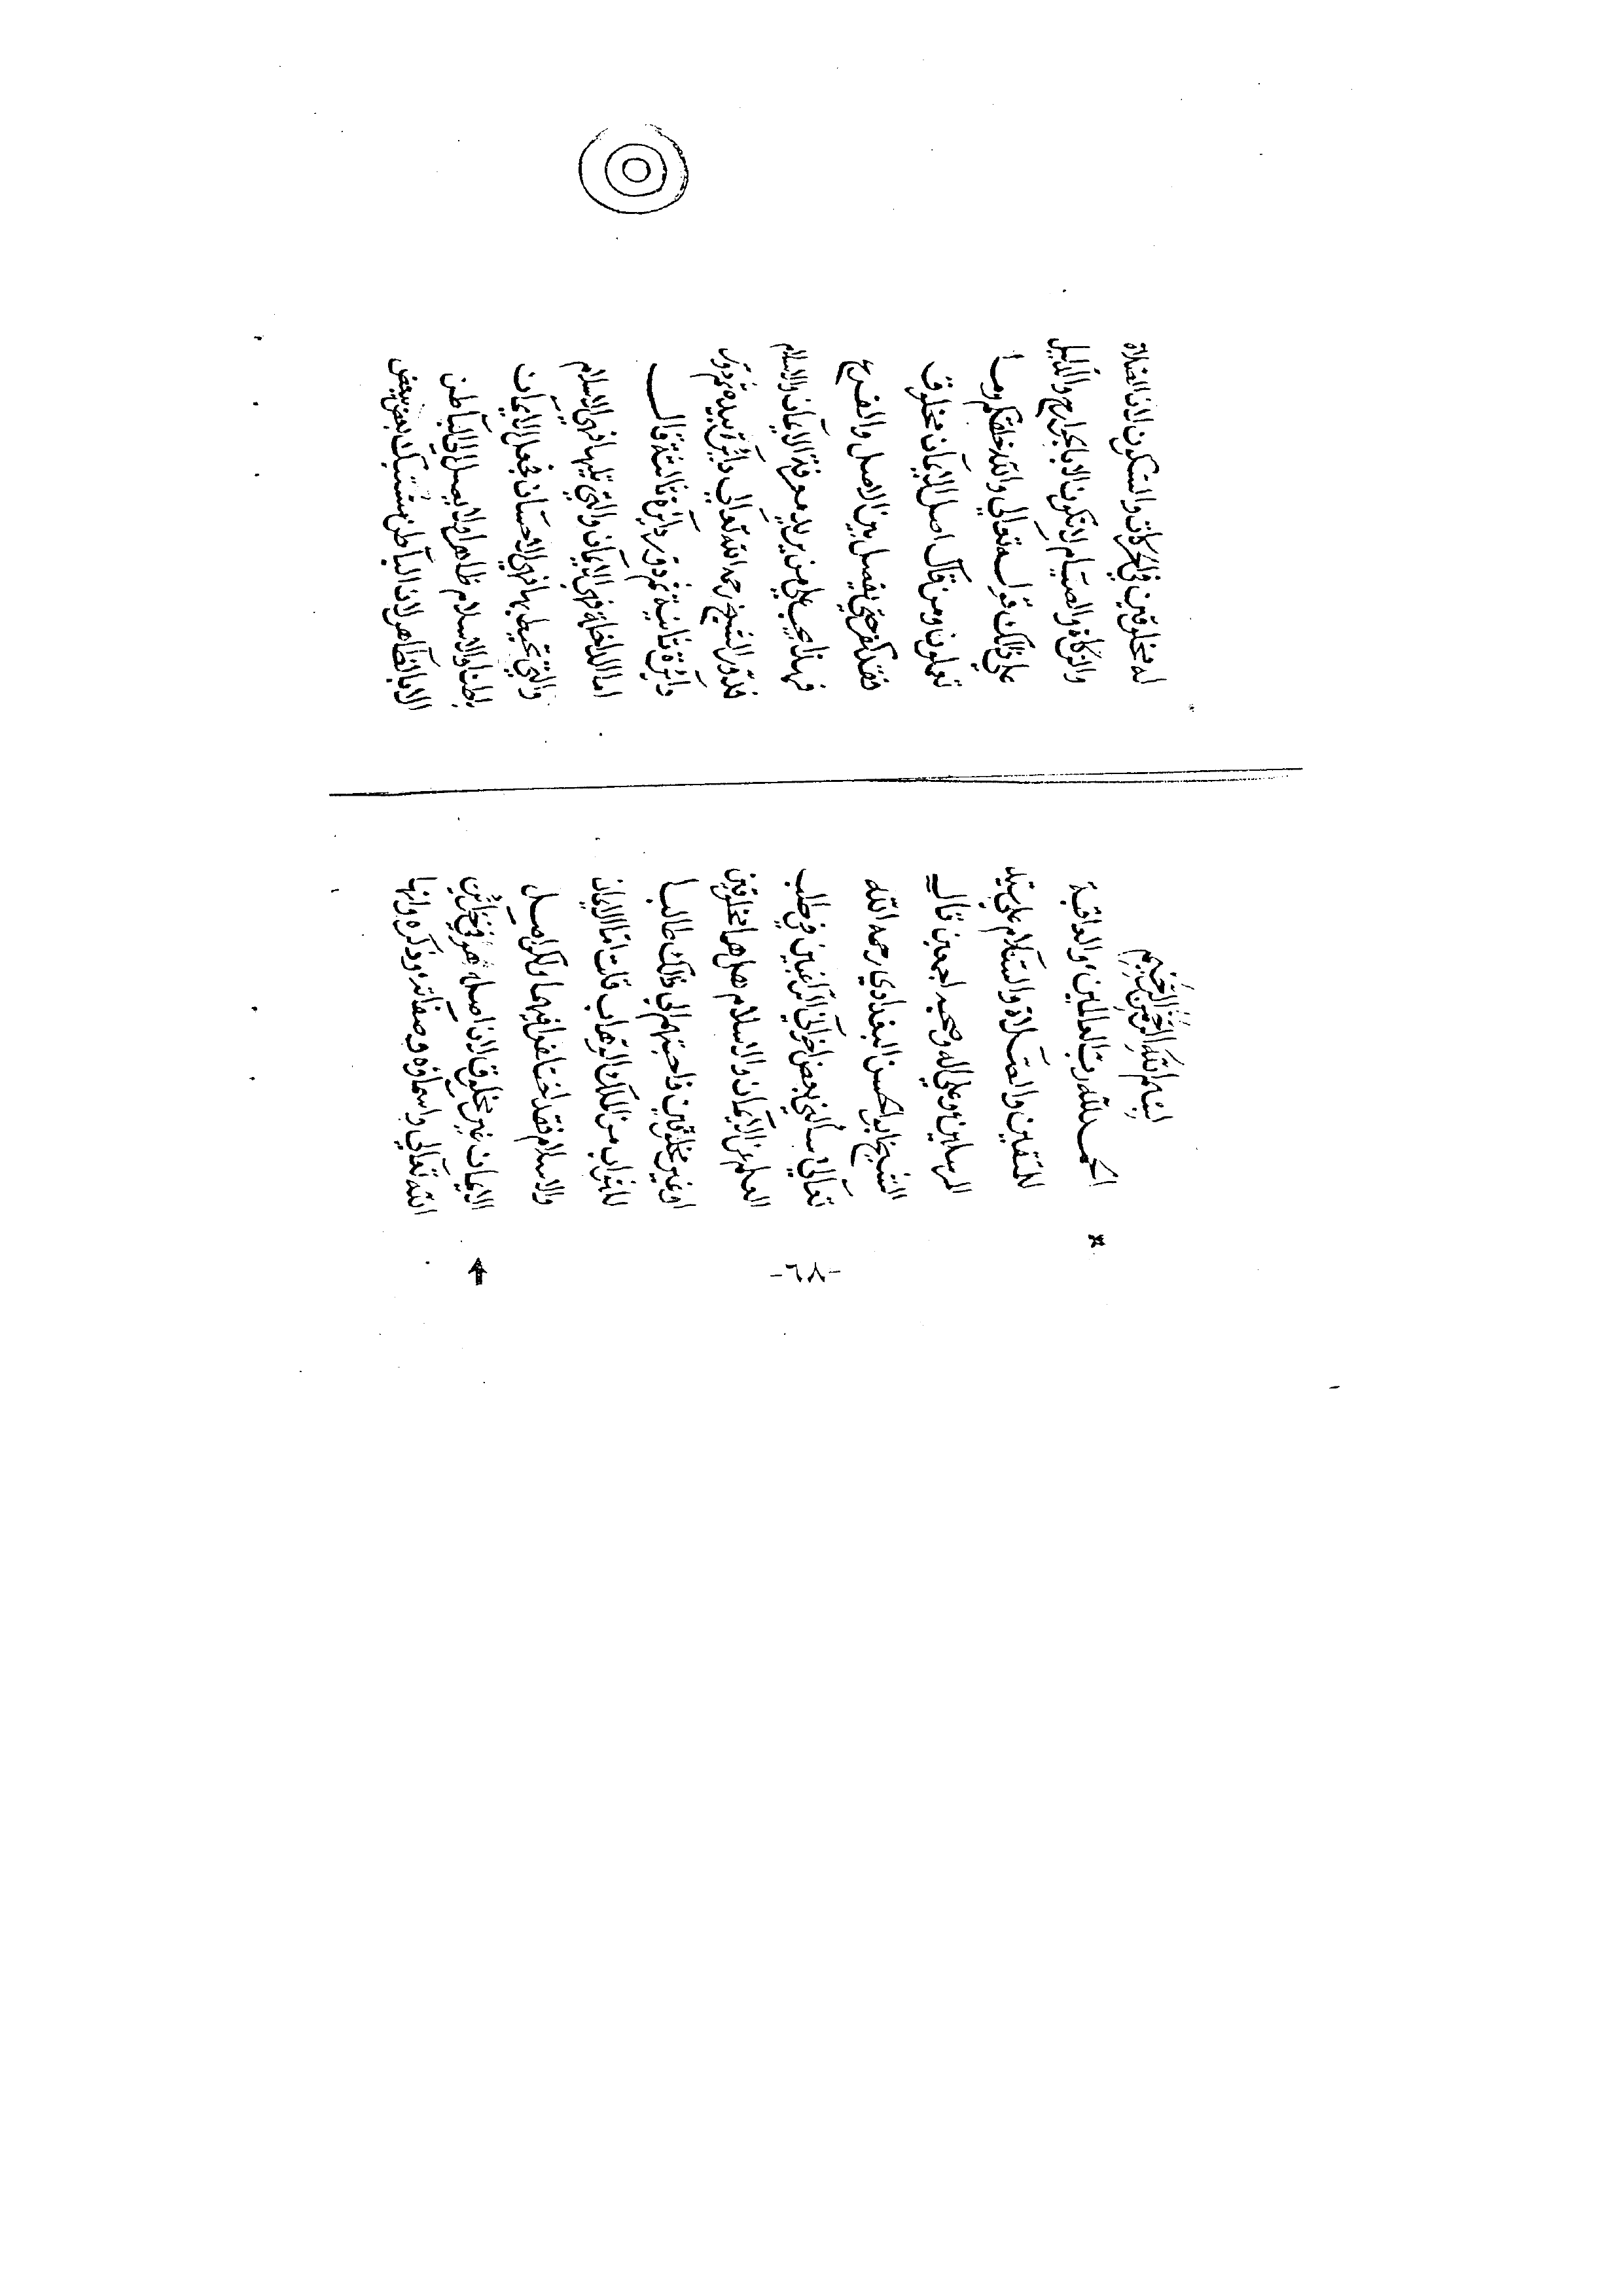 بسم الله الرحمن الرحيم
الحمد لله رب العالمين والعاقبة
للمتقين والصلاة والسلام على سيد
المرسلين وعلى اله وصحبه اجمعين قال
الشيخ ابو الحسن البغدادي رحمه الله
تعالى سألني بعض اخواني الراغبين في طلب
العلم عن الايمان والاسلام هل هما مخلوقين
او غير مخلوقين فاجبتهم الى ذلك طالبا
للثواب من الملك الوهاب قلت اما الايمان
والاسلام فقد اختلفوا فيهما ولكن اصل
الايمان غير مخلوق لان اصله هو في خزائن
الله تعالى واسماؤه وصفاته وذكره وانها
له مخلوقين في الحركات والسكون لان الصلاة
والزكاة والصيام لا تكون الا بالجوارح والدليل
على ذلك قوله تعالى والله خلقكم وما
تعملون ومن قال اصل الايمان مخلوق
فقد كفر حتى يفصل بين الاصل والفرع
فهذا يجب على من يريد معرفة الايمان والاسلام
فدور الشيخ رحمه الله تعالى دائرة بيده ثم دور
دائرة ثانية ثم دور دائرة ثالثة قال
اما الداخلة فهي الايمان والتي تليها فهي الاسلام
والتي تحيط بها فهي الاحسان فجعل الايمان
باطنا والاسلام ظاهرا ولا يصل الى الباطن
الا بالظاهر لان الباطن مشتبك بعض ببعض
-٦٨-